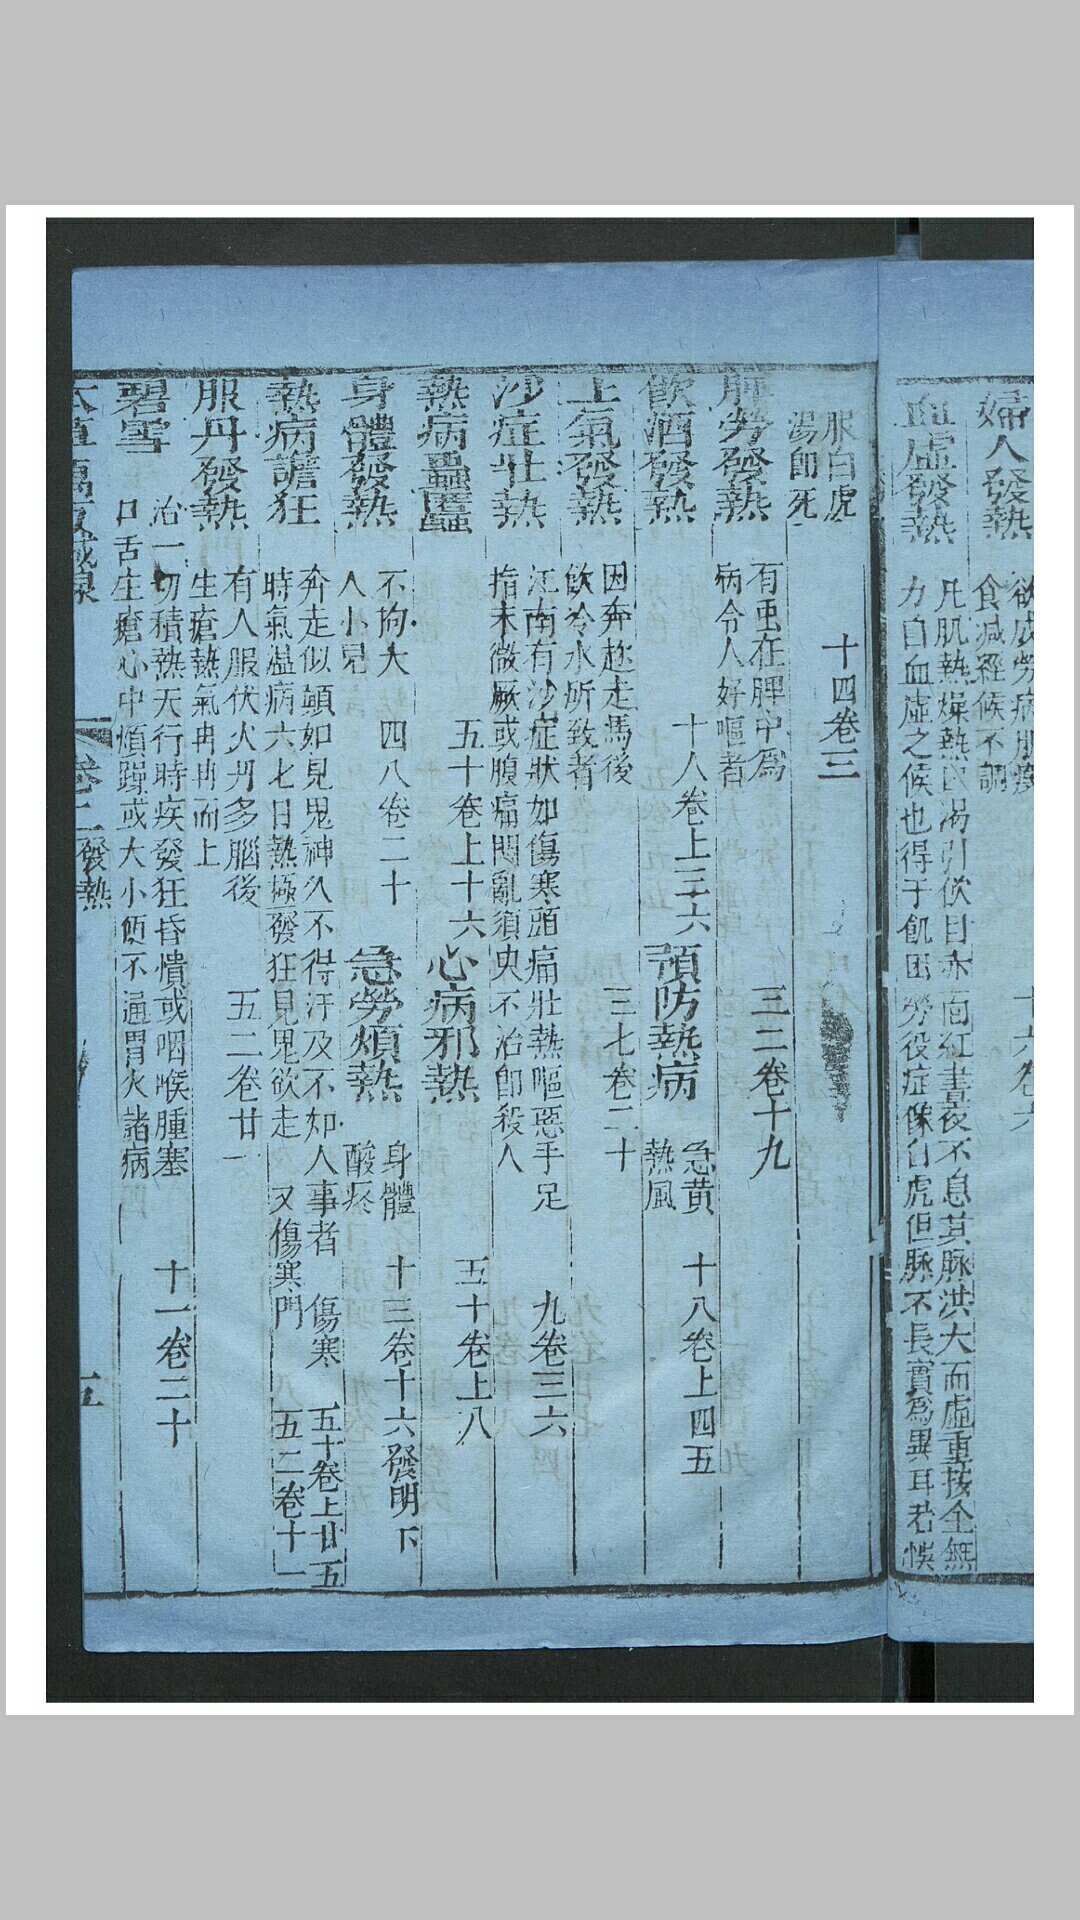 婦人發熱
欲成勞病肌瘦
食減經候不調
十六卷六
血虛發熱
凡肌熱燥熱口渴引飲目赤面紅晝夜不息其脉洪大而虛重按全無
力自血虛之候也得于飢困勞役症像白虎但脉不長實為異耳若悞
服白虎
湯即死
十四卷三
脾勞發熱
有虫在脾中為
病令人好嘔者
三二卷十九
飲酒發熱
十八卷上三六
預防熱病
急黄
熱風
十八卷上四五
上氣發熱
因奔趂走馬後
飲冷水所致者
三七卷二十
沙症壯熱
江南有沙症狀如傷寒頭痛壯熱嘔惡手足
指末微厥或腹痛悶亂須臾不治即殺人
九卷三六
熱病䘌
五十卷上十六
心病邪熱
五十卷上八
身體發熱
不拘大
人小兒
四八卷二十
急勞煩熱
身體
酸疼
十三卷十六發明下
熱病譫狂
奔走似顛如見鬼神久不得汗及不知人事者
傷寒
五十卷上廿五
時氣温病六七日熱極發狂見鬼欲走
又傷寒門
五二卷十一
服丹發熱
有人服伏火丹多腦後
生瘡熱氣冉冉而上
五二卷廿一
碧雪
治一切積熱天行時疾發狂昏憒或咽喉腫塞
口舌生瘡心中煩躁或大小便不通胃火諸病
十一卷二十
本草萬方鍼線
卷二發熱
五